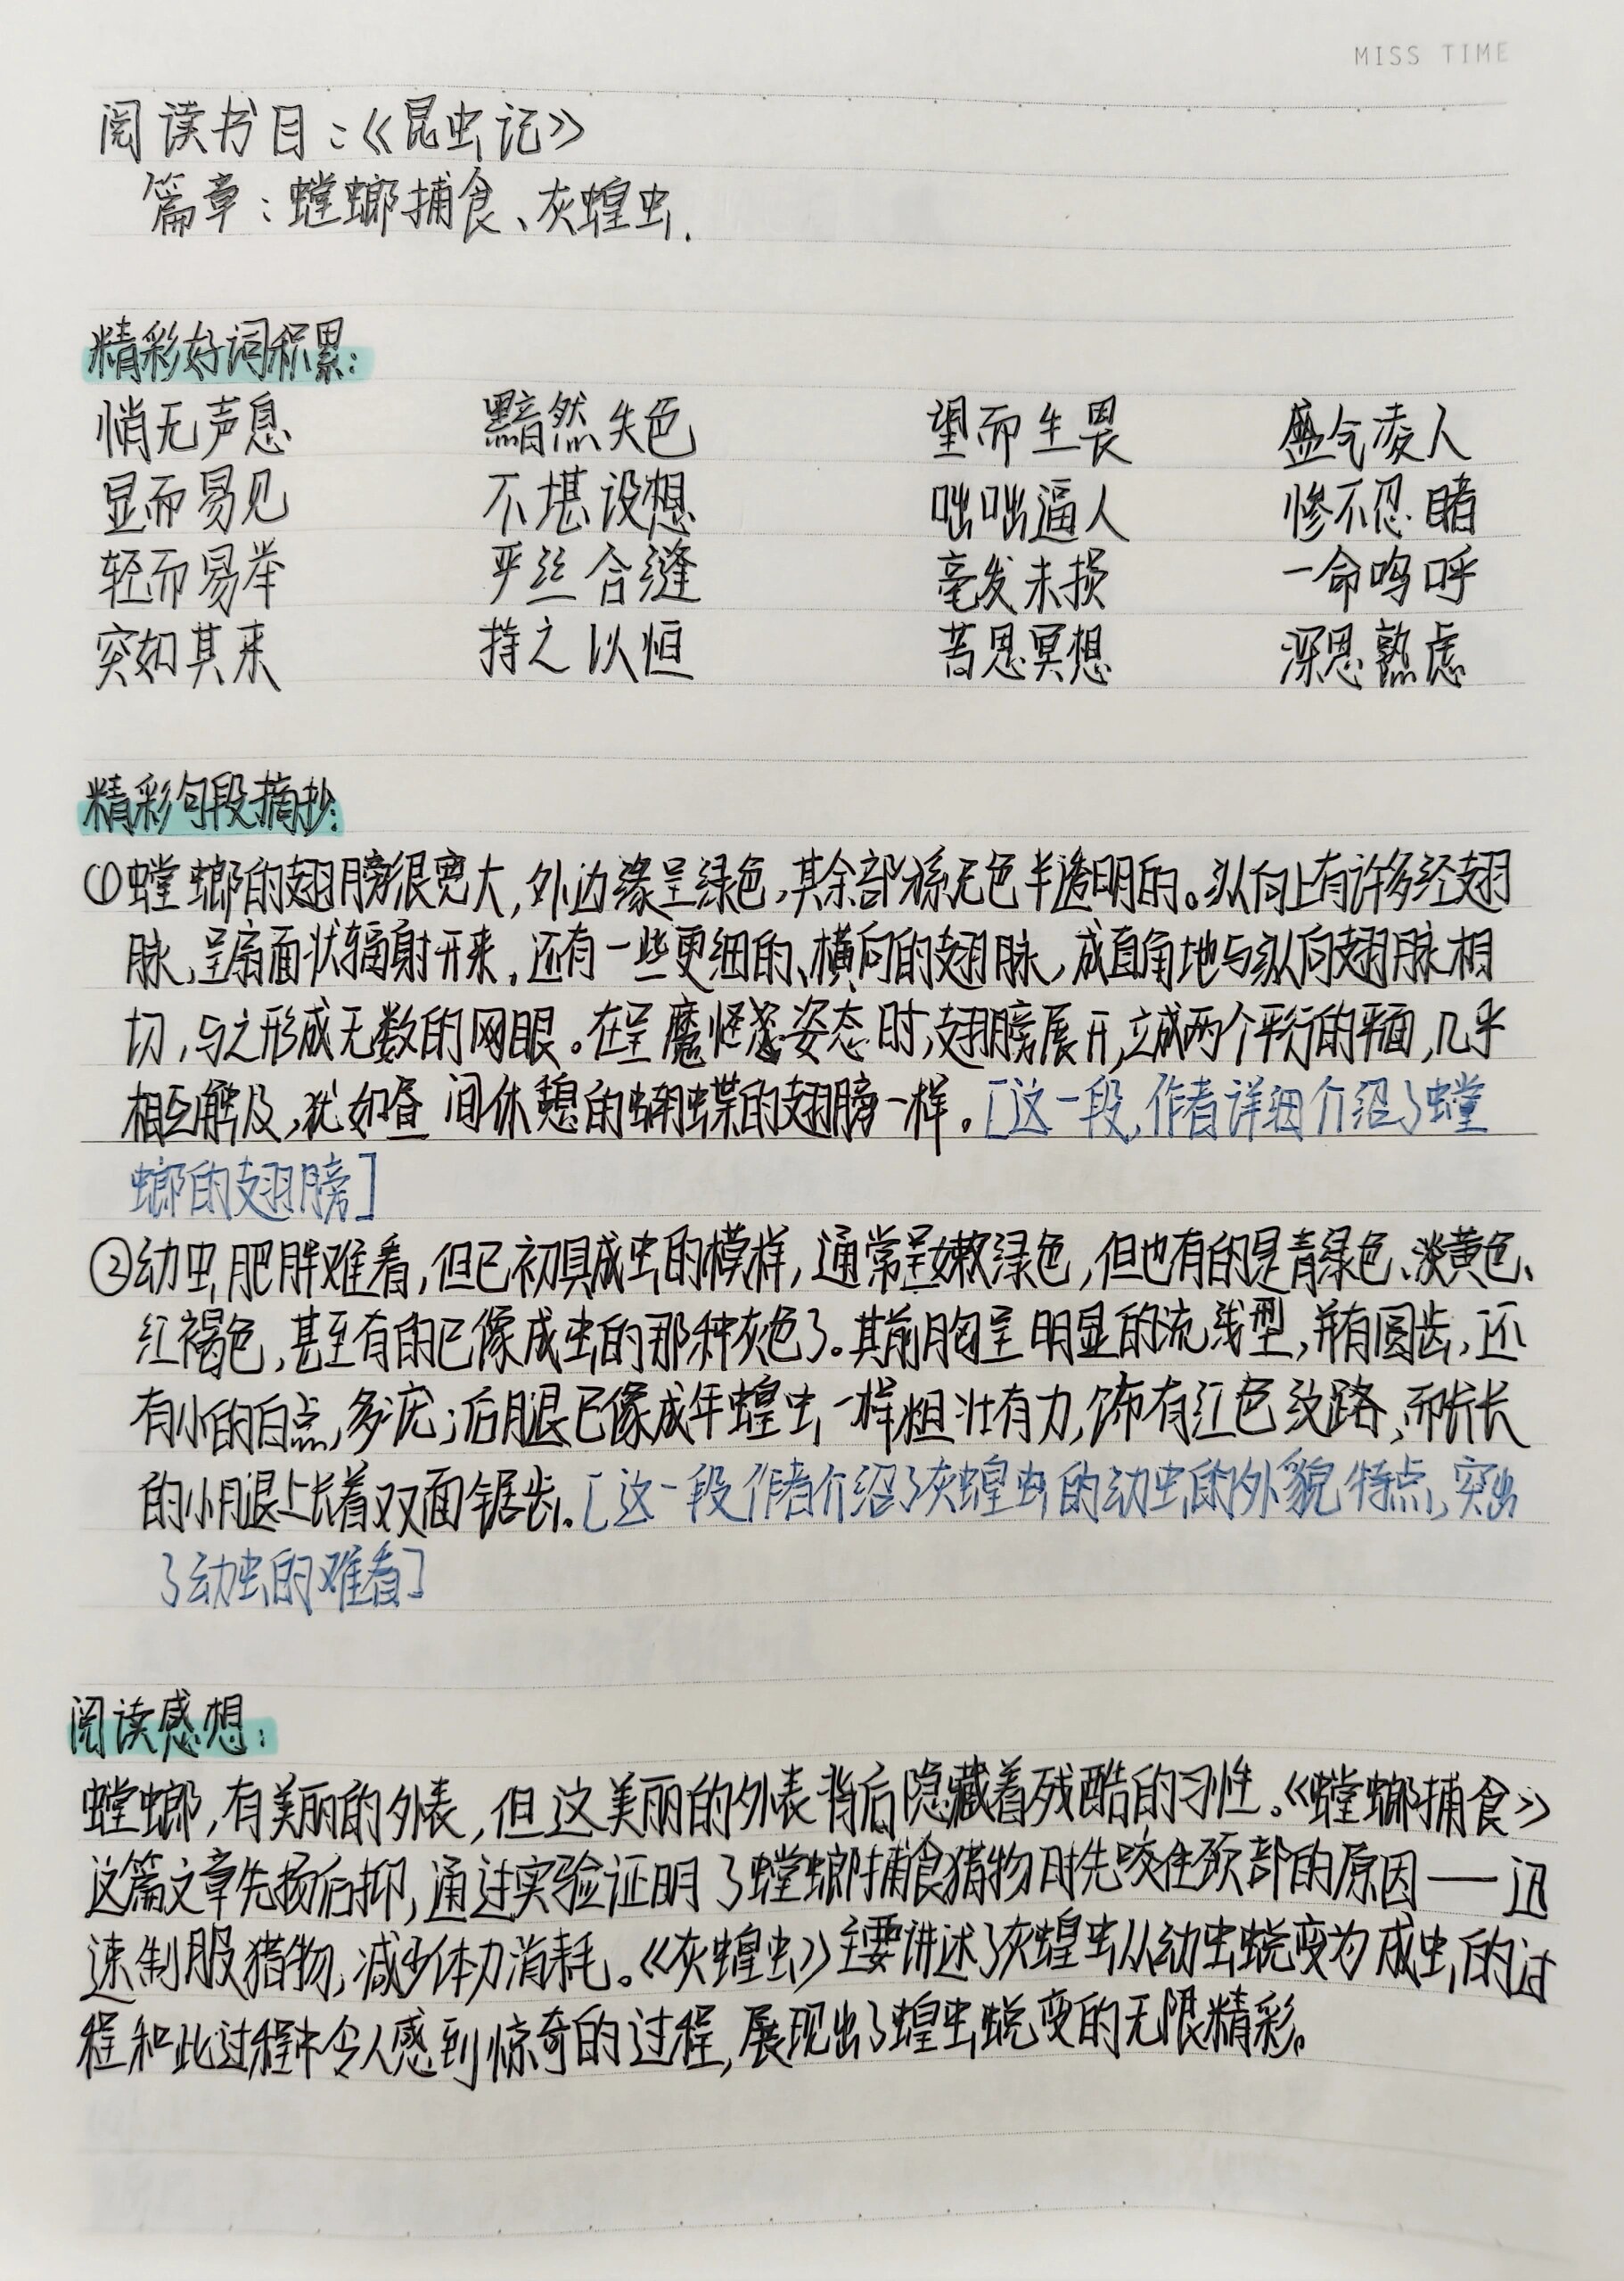 MISS TIME
阅读书目:《昆虫记》
篇章:螳螂捕食、灰蝗虫.
精彩好词积累:
悄无声息 黯然失色 望而生畏 盛气凌人
显而易见 不堪设想 咄咄逼人 惨不忍睹
轻而易举 严丝合缝 毫发未损 一命呜呼
突如其来 持之以恒 苦思冥想 深思熟虑
精彩句段摘抄:
①螳螂的翅膀很宽大,外边缘呈绿色,其余部分系无色半透明的。纵向上有许多经翅
脉,呈扇面状辐射开来,还有一些更细的、横向的翅脉,成直角地与纵向翅脉相
切,与之形成无数的网眼。在呈魔怪姿态时,翅膀展开,立成两个平行的平面,几乎
相互触及,犹如昼间休憩的蝴蝶的翅膀一样。[这一段,作者详细介绍了螳
螂的翅膀]
②幼虫肥胖难看,但已初具成虫的模样,通常呈嫩绿色,但也有的是青绿色、淡黄色、
红褐色,甚至有的已像成虫的那种灰色了。其前胸呈明显的流线型,并有圆齿,还
有小的白点,多疣;后腿已像成年蝗虫一样粗壮有力,饰有红色纹路,而长长
的小腿上长着双面锯齿。[这一段作者介绍了灰蝗虫的幼虫的外貌特点,突出
了幼虫的难看]
阅读感想:
螳螂,有美丽的外表,但这美丽的外表背后隐藏着残酷的习性。《螳螂捕食》
这篇文章先扬后抑,通过实验证明了螳螂捕食猎物时先咬住颈部的原因——迅
速制服猎物,减少体力消耗。《灰蝗虫》主要讲述了灰蝗虫从幼虫蜕变为成虫的过
程和此过程中令人感到惊奇的过程,展现出了蝗虫蜕变的无限精彩。